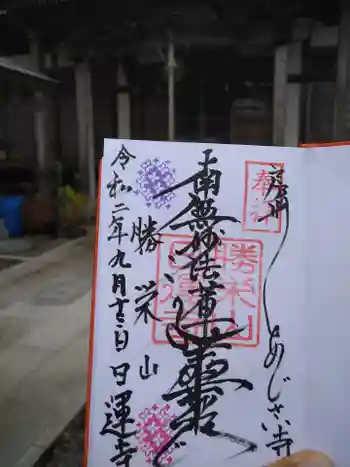 奉拝
房州 あじさい寺
南無妙法蓮華経
勝栄山
日運寺
勝栄山 日運寺
令和二年九月